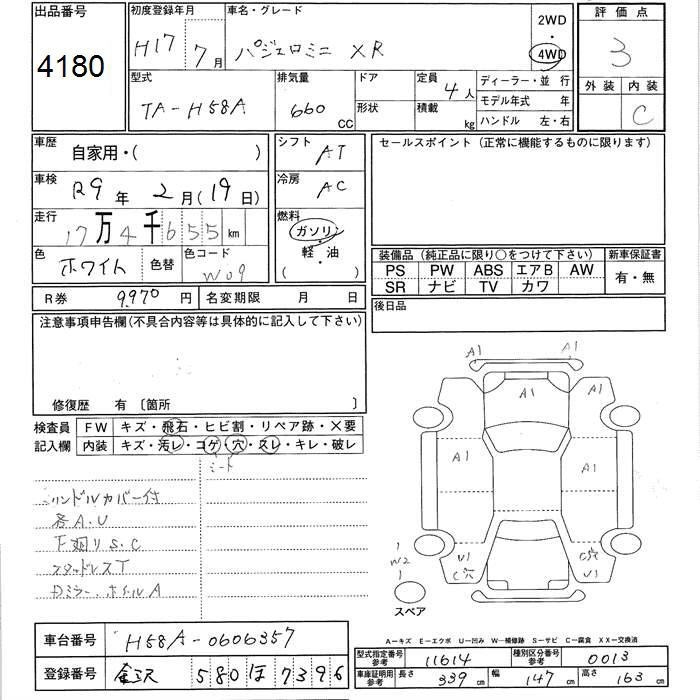 出品番号
4180
初度登録年月
H17 7月
車名・グレード
パジェロミニ XR
2WD
・
4WD
評価点
3
外装 内装
C
型式
TA-H58A
排気量
660 CC
ドア
形状
定員
4人
積載
kg
ディーラー・並行
モデル年式 年
ハンドル 左・右
車歴
自家用・( )
車検
R9年 2月(19日)
走行
17万4千655km
色
ホワイト
色替
色コード
W09
シフト
AT
冷房
AC
燃料
ガソリン
・
軽・油
( )
セールスポイント (正常に機能するものに限ります)
装備品 (純正品に限り○をつけて下さい)
PS PW ABS エアB AW
SR ナビ TV カワ
新車保証書
有・無
R券 9970円
名変期限 月 日
後日品
注意事項申告欄(不具合内容等は具体的に記入して下さい)
修復歴 有 〔箇所 〕
検査員
記入欄
FW キズ・飛石・ヒビ割・リペア跡・X要
内装 キズ・汚レ・コゲ・穴・スレ・キレ・破レ
シート
ハンドルカバー付
各A.U
下廻りS.C
スタッドレスT
Dミラー、ホイルA
A1
A1
A1
A1
A1
A1
U1
C穴
C穴
U1
W2
スペア
A－キズ E－エクボ U－凹み W－補修跡 S－サビ C－腐食 XX－交換済
車台番号
H58A-0606357
登録番号
金沢 580 ほ 7396
型式指定番号
参考
11614
種別区分番号
参考
0013
車庫証明用
参考
長さ 339cm
幅 147cm
高さ 163cm